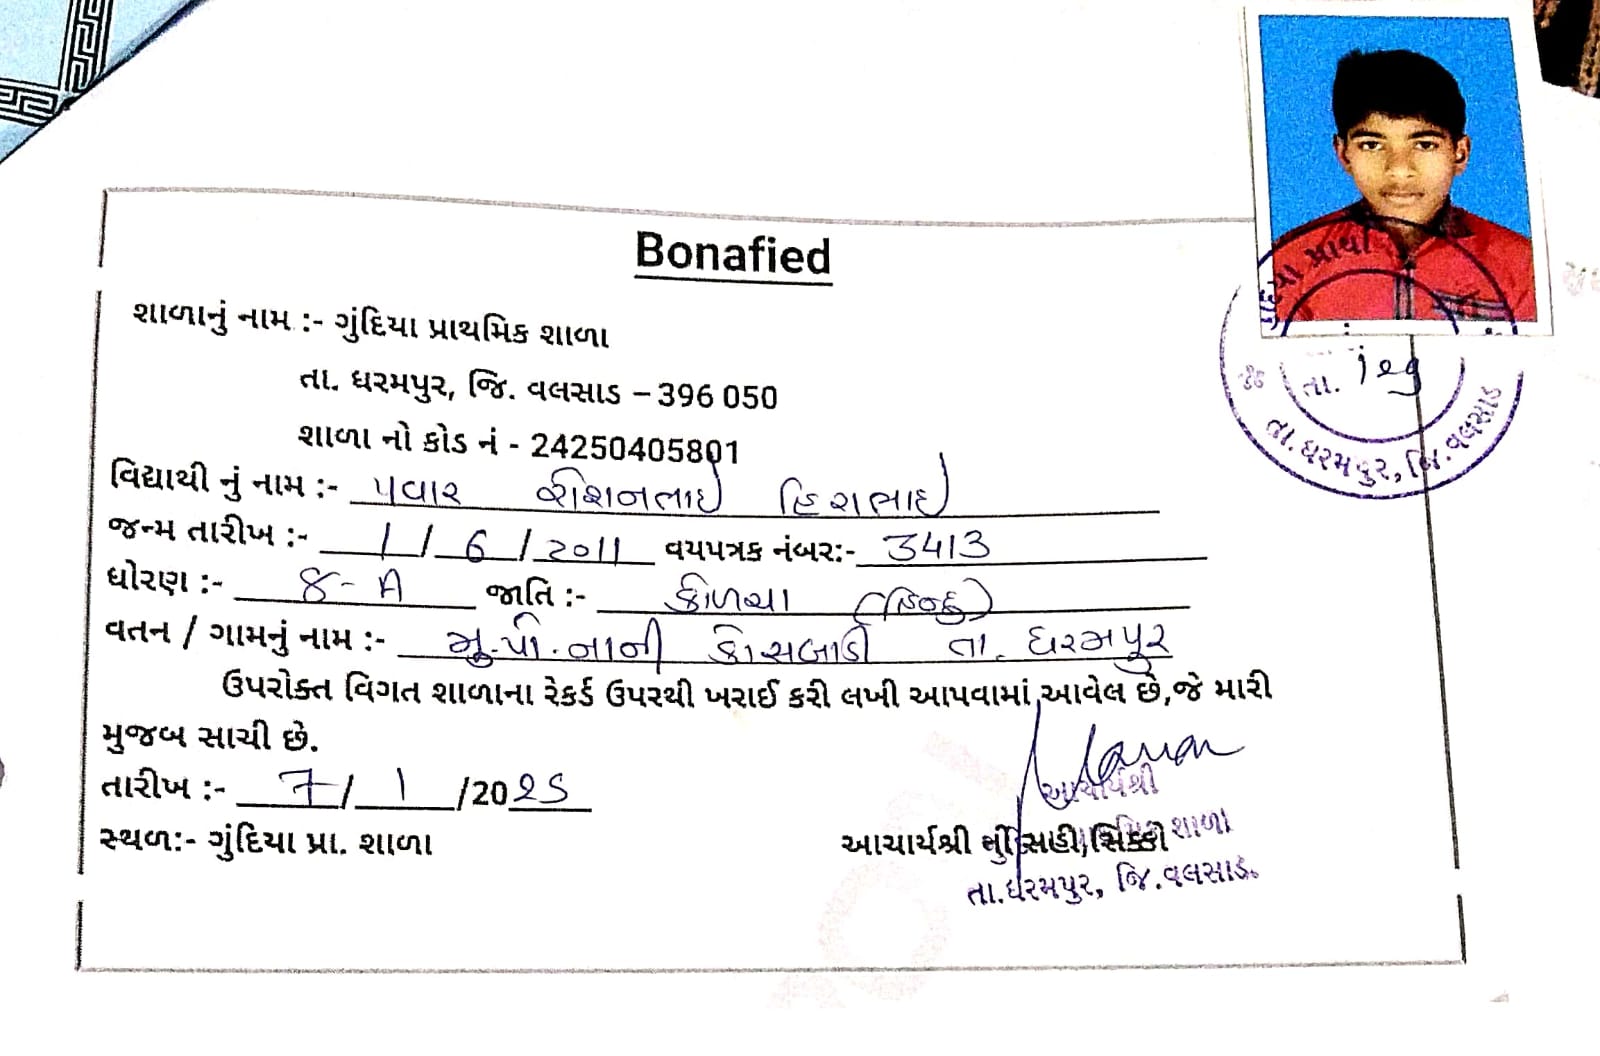 Bonafied
શાળાનું નામ :- ગુંદિયા પ્રાથમિક શાળા
તા. ધરમપુર, જિ. વલસાડ – 396 050
શાળા નો કોડ નં - 24250405801
વિદ્યાથી નું નામ :- પવાર રોશનભાઇ હિરાભાઇ
જન્મ તારીખ :- 1 / 6 / 2011 વયપત્રક નંબર:- 3413
ધોરણ :- 8 - A જાતિ :- કોળચા (હિન્દુ)
વતન / ગામનું નામ :- મુ.પો. નાની કોસબાડી તા. ધરમપુર
ઉપરોક્ત વિગત શાળાના રેકર્ડ ઉપરથી ખરાઈ કરી લખી આપવામાં આવેલ છે,જે મારી
મુજબ સાચી છે.
તારીખ :- 7 / 1 /2025
સ્થળ:- ગુંદિયા પ્રા. શાળા
આચાર્યશ્રી ની સહી/સિક્કો
આચાર્યશ્રી
શાળા
તા.ધરમપુર, જિ.વલસાડ.
તા.
તા.ધરમપુર, જિ.વલસાડ